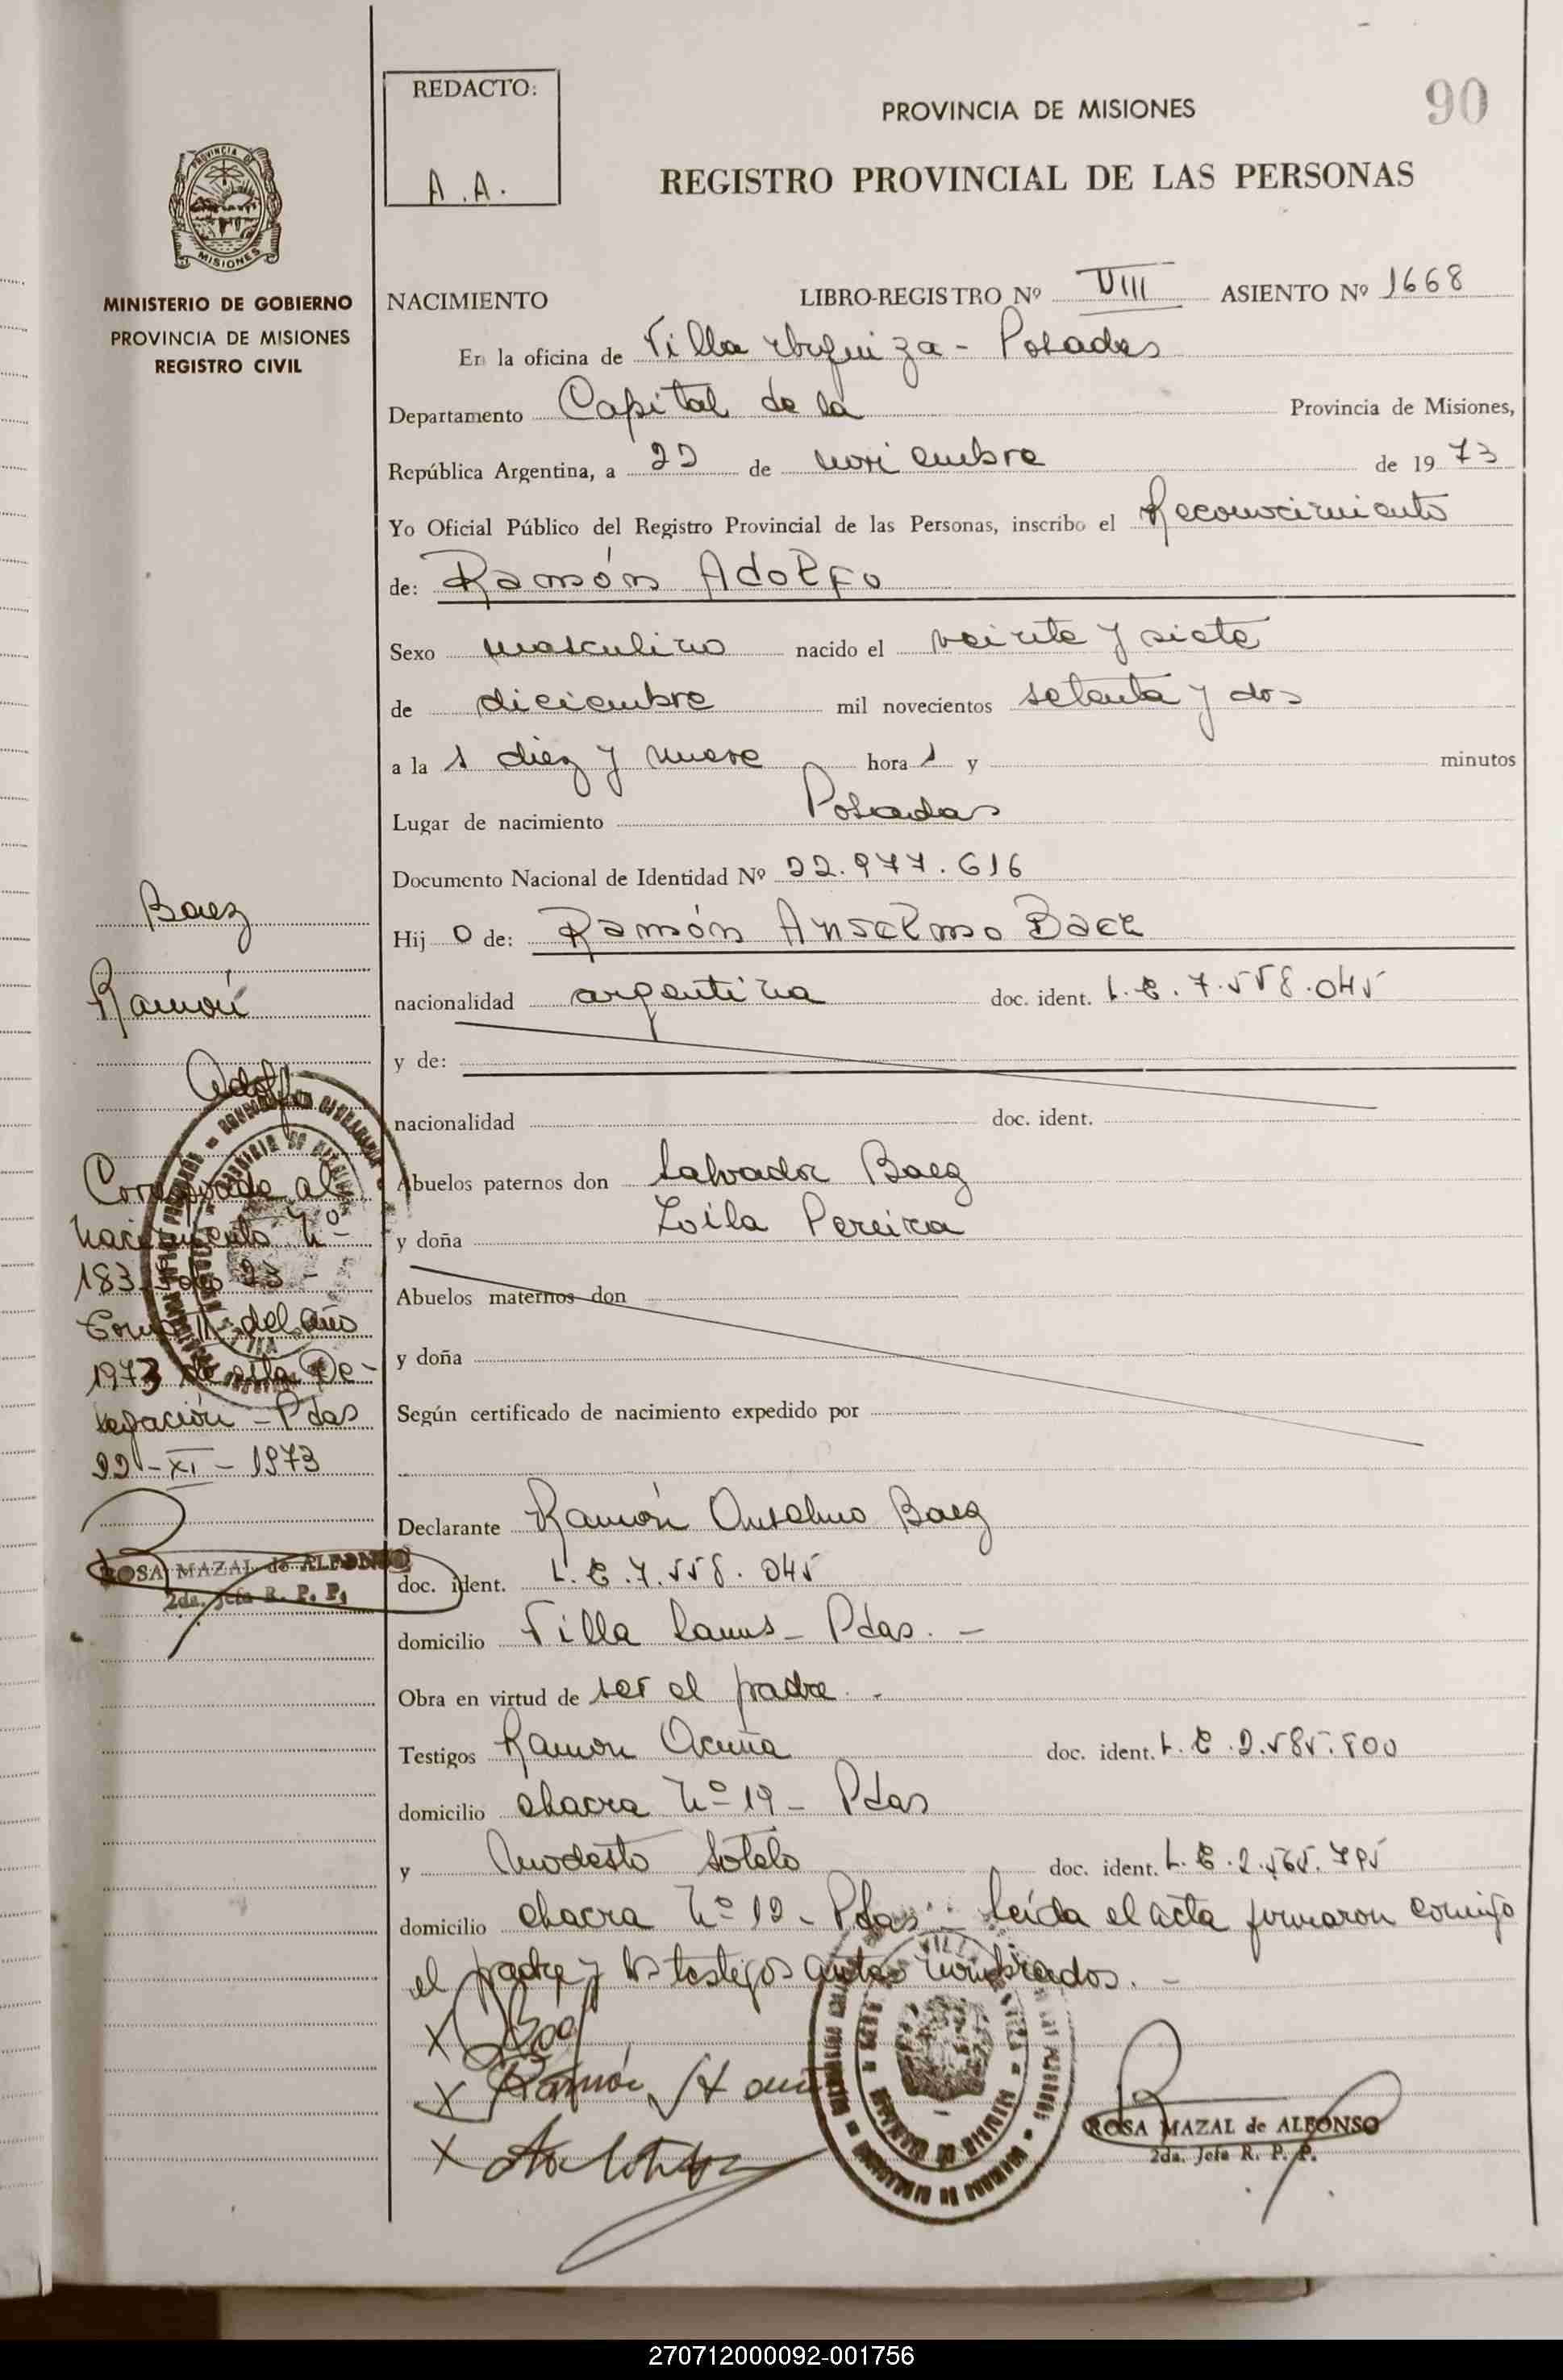 REDACTO:
A.A.
PROVINCIA DE MISIONES
90
REGISTRO PROVINCIAL DE LAS PERSONAS
PROVINCIA DE
MISIONES
MINISTERIO DE GOBIERNO
PROVINCIA DE MISIONES
REGISTRO CIVIL
NACIMIENTO LIBRO-REGISTRO Nº VIII ASIENTO Nº 1668
En la oficina de Villa Urquiza - Posadas
Departamento Capital de la Provincia de Misiones,
República Argentina, a 22 de noviembre de 1973
Yo Oficial Público del Registro Provincial de las Personas, inscribo el Reconocimiento
de: Ramón Adolfo
Sexo masculino nacido el veinte y siete
de diciembre mil novecientos setenta y dos
a la s diez y nueve hora s y minutos
Lugar de nacimiento Posadas
Documento Nacional de Identidad Nº 22.977.616
Hij o de: Ramón Anselmo Baez
nacionalidad argentina doc. ident. L.E. 7.558.045
y de:
nacionalidad doc. ident.
Abuelos paternos don Salvador Baez
y doña Zoila Pereira
Abuelos maternos don
y doña
Según certificado de nacimiento expedido por
Declarante Ramón Anselmo Baez
doc. ident. L.E. 7.558.045
domicilio Villa Lanus - Pdas. -
Obra en virtud de ser el padre. -
Testigos Ramon Acuña doc. ident. L.E. 2.585.800
domicilio chacra Nº 19 - Pdas
y Modesto Sotelo doc. ident. L.E. 2.565.795
domicilio chacra Nº 19 - Pdas.- Leída el acta firmaron conmigo
el padre y los testigos antes nombrados. -
x Baez
x Ramón
x
ROSA MAZAL de ALFONSO
2da. Jefa R. P. P.
Baez
Ramón
Adolfo
Corresponde al
nacimiento Nº
183 Folio 23 -
Tomo II del año
1973 de esta De-
legación - Pdas
22 - XI - 1973
ROSA MAZAL de ALFONSO
2da. Jefa R. P. P.
270712000092-001756